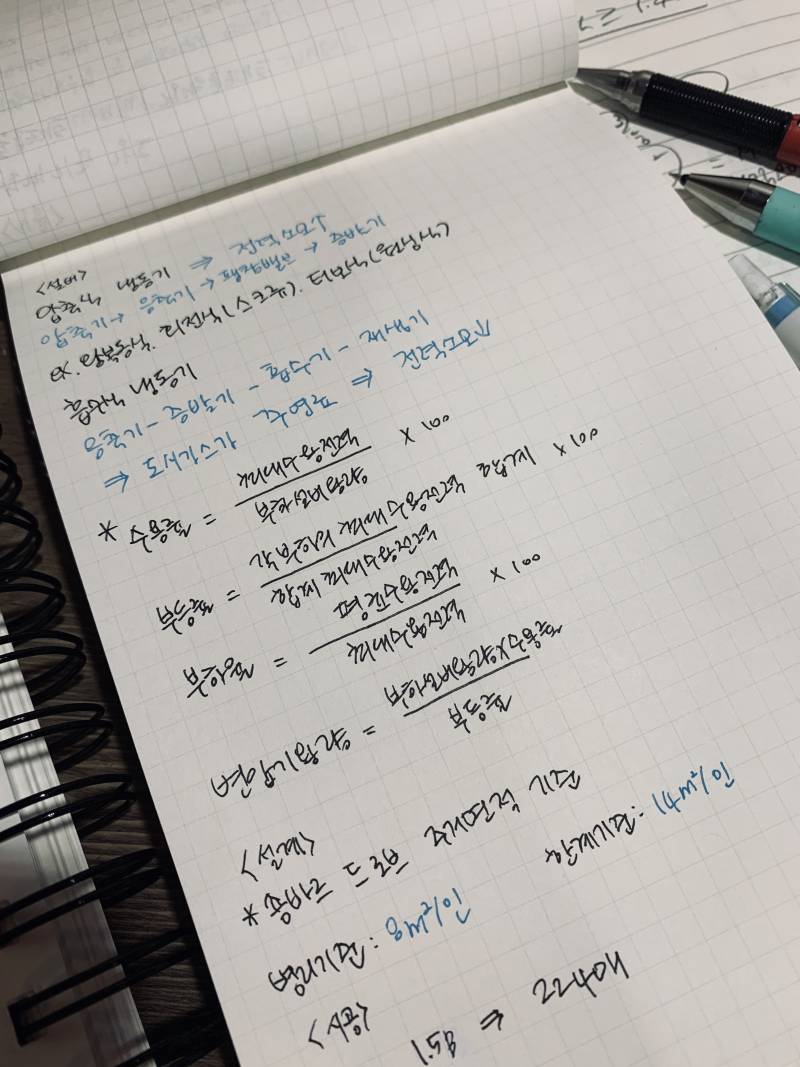 <설비>
압축식 냉동기 ⇒ 전력소모↑
압축기 → 응축기 → 팽창밸브 → 증발기
ex. 왕복동식. 회전식(스크류). 터보식(원심식)
흡수식 냉동기
응축기 - 증발기 - 흡수기 - 재생기
⇒ 도시가스가 주연료 ⇒ 전력소모↓
* 수용률 = 최대수용전력 / 부하설비용량 × 100
부등률 = 각 부하의 최대수용전력 합계 / 합계 최대수용전력 × 100
부하율 = 평균수용전력 / 최대수용전력 × 100
변압기용량 = 부하설비용량×수용률 / 부등률
<설계>
* 숑바르 드 로브 주거면적 기준
병리기준: 8m²/인
한계기준: 14m²/인
<시공>
1.5B ⇒ 224매